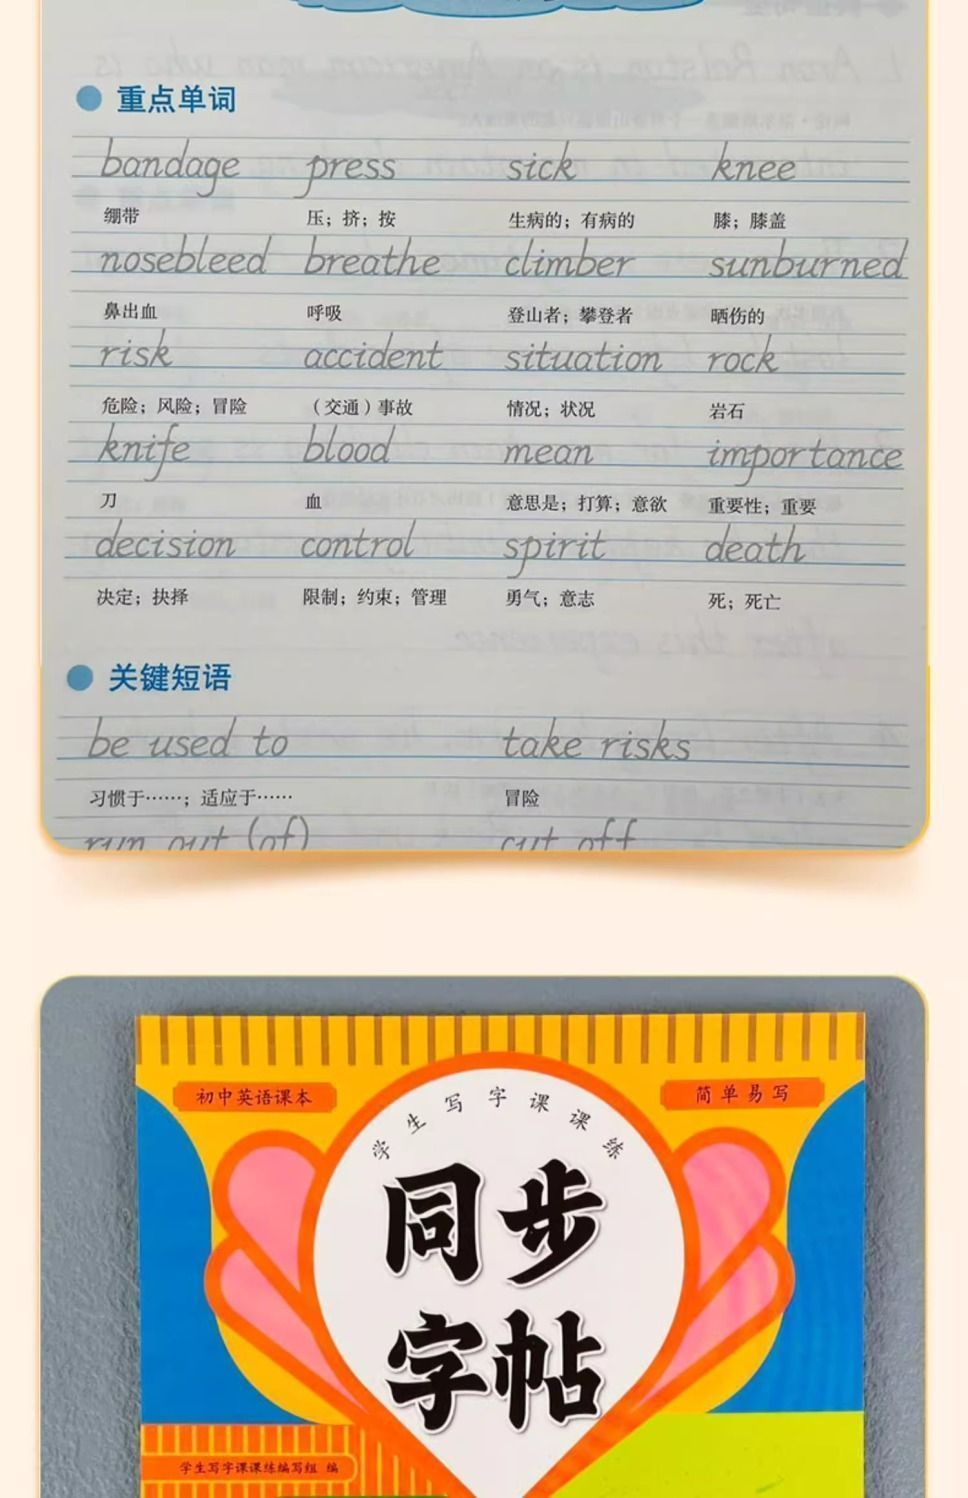 重点单词
bandage press sick knee
绷带 压；挤；按 生病的；有病的 膝；膝盖
nosebleed breathe climber sunburned
鼻出血 呼吸 登山者；攀登者 晒伤的
risk accident situation rock
危险；风险；冒险 （交通）事故 情况；状况 岩石
knife blood mean importance
刀 血 意思是；打算；意欲 重要性；重要
decision control spirit death
决定；抉择 限制；约束；管理 勇气；意志 死；死亡
关键短语
be used to take risks
习惯于……；适应于…… 冒险
run out (of) cut off
初中英语课本 简单易写
学生写字课课练
同步
字帖
学生写字课课练编写组 编